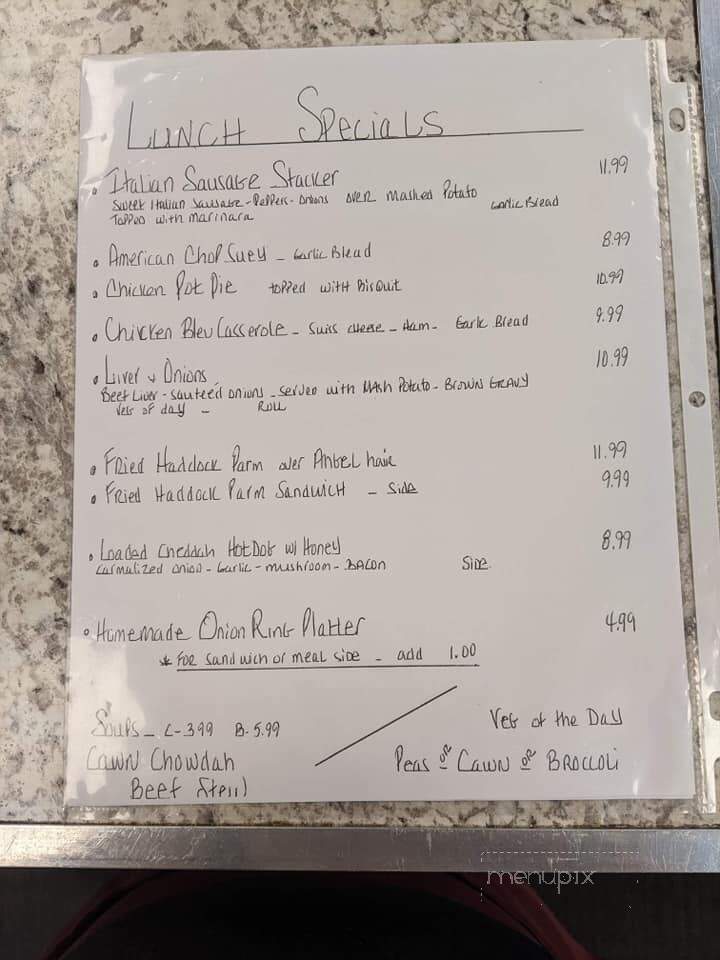 Lunch Specials
• Italian Sausage Stacker 11.99
Sweet Italian Sausage - Peppers - Onions over Mashed Potato Garlic Bread
Topped with marinara
• American Chop Suey - Garlic Bread 8.99
• Chicken Pot Pie topped with Bisquit 10.99
• Chicken Bleu Casserole - Suiss cheese - Ham - Garlic Bread 9.99
• Liver & Onions 10.99
Beef Liver - sauteed onions - served with Mash Potato - Brown Gravy
Veg of day - Roll
• Fried Haddock Parm over Angel hair 11.99
• Fried Haddock Parm Sandwich - Side 9.99
• Loaded Cheddah HotDog w/ Honey 8.99
Carmalized onion - Garlic - mushroom - Bacon Side
• Homemade Onion Ring Platter 4.99
* For sandwich or meal side - add 1.00
Soups - C-3.99 B-5.99
Cawn Chowdah
Beef Stew
Veg of the Day
Peas or Cawn or Broccoli
menupix